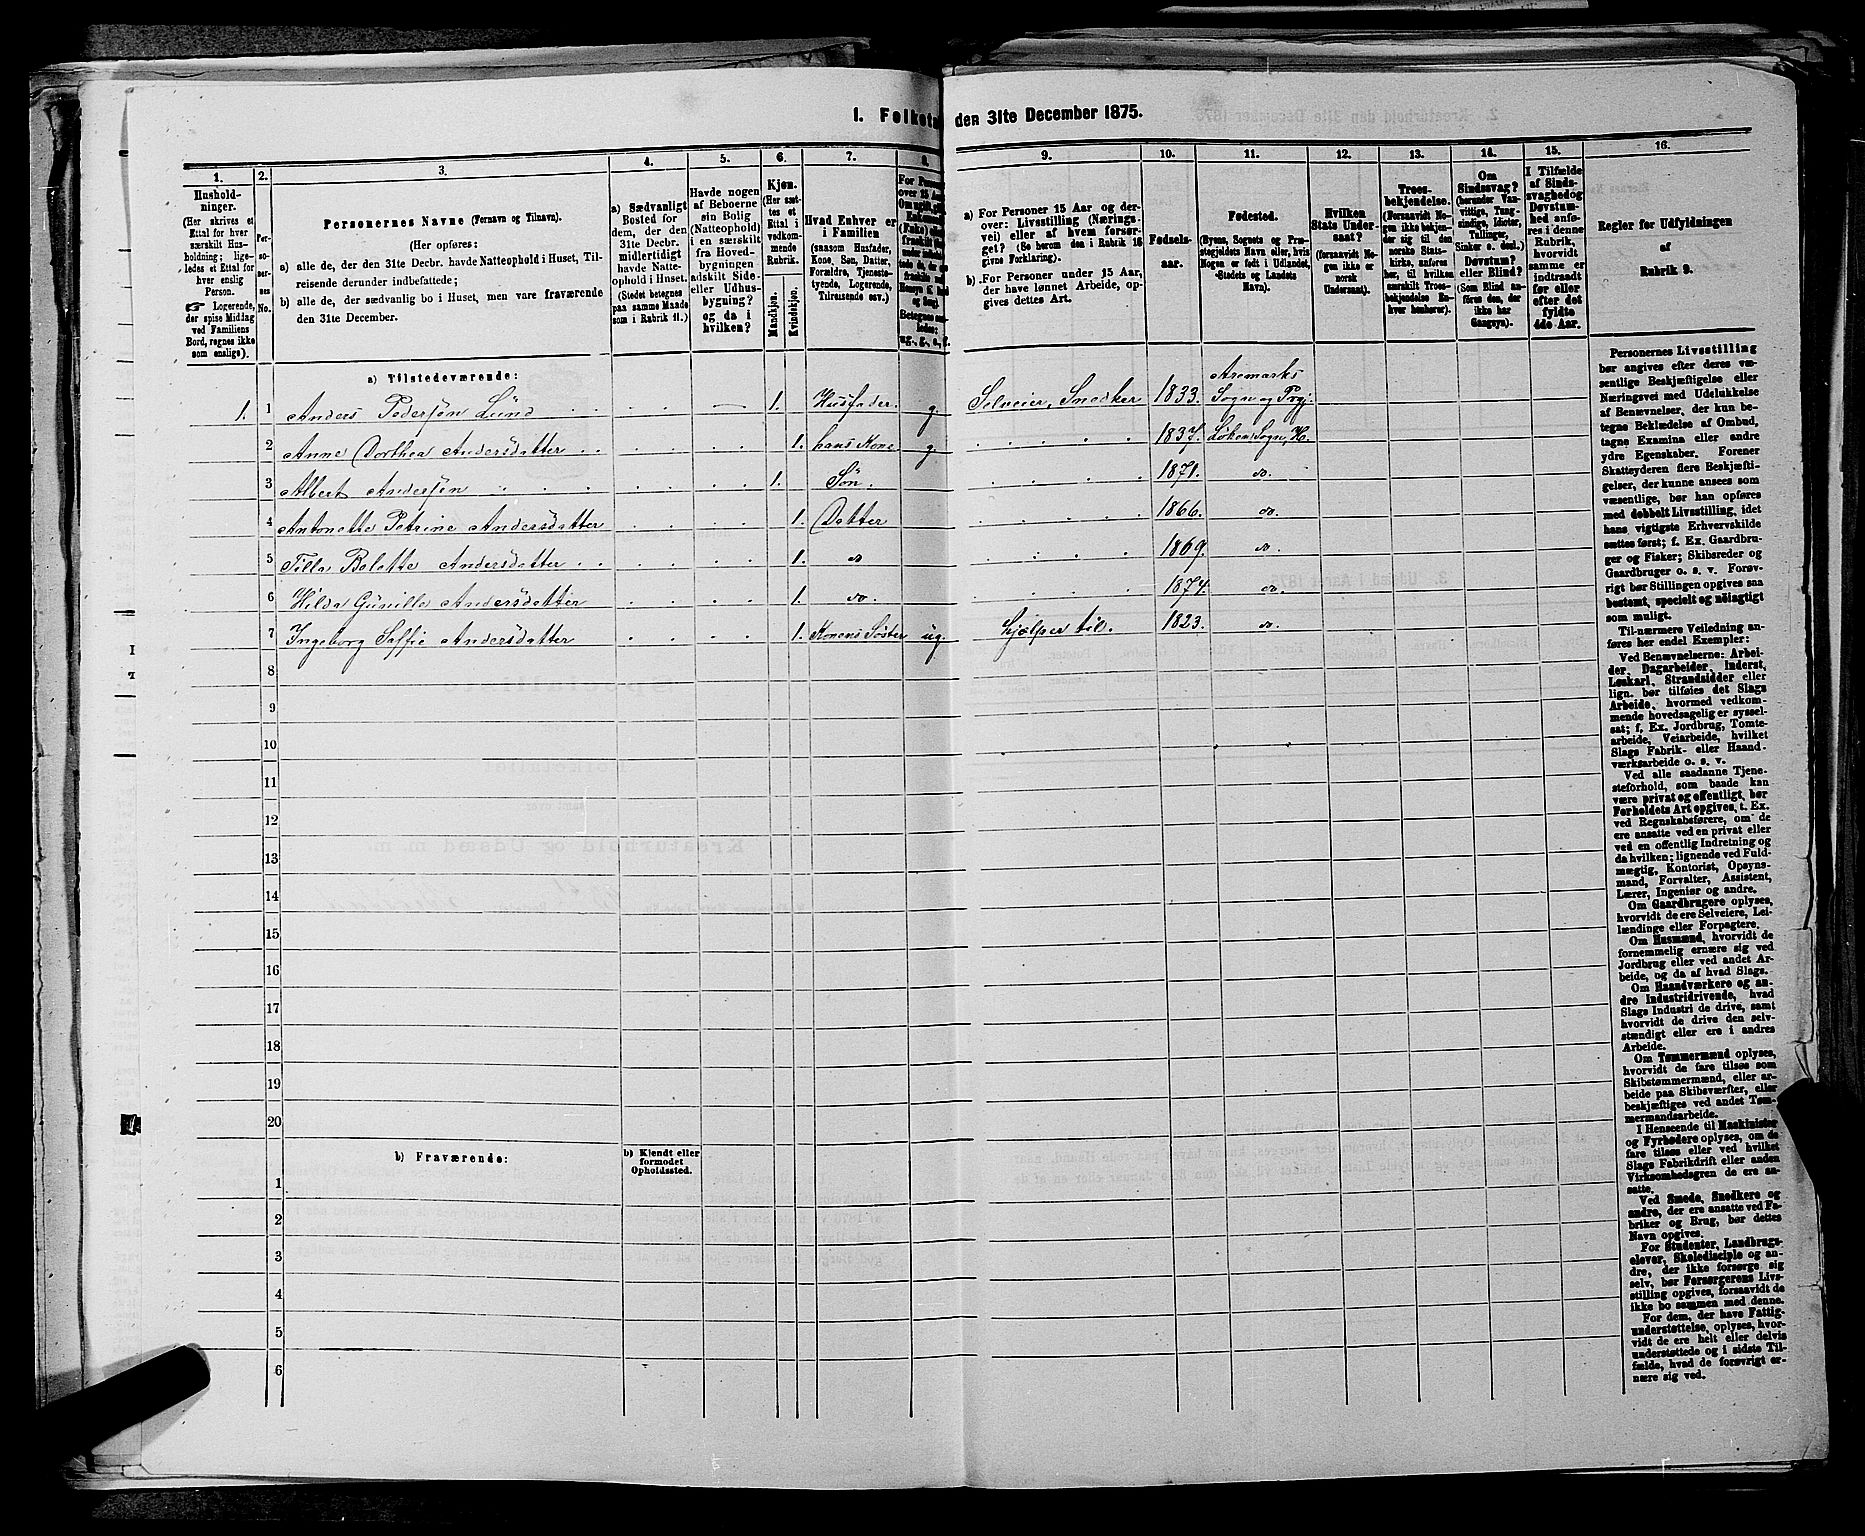 1. Folketæl den 31te December 1875.
1.
Hushold-
ninger.
(Her skrives et
Ettal for hver
særskilt Hus-
holdning; lige-
ledes et Ettal for
hver enslig
Person.
☞ Logerende,
der spise Middag
ved Familiens
Bord, regnes ikke
som enslige).
2.
Per-
so-
ner-
nes
No.
3.
Personernes Navne (Fornavn og Tilnavn).
(Her opføres:
a) alle de, der den 31te Decbr. havde Natteophold i Huset, Til-
reisende derunder indbefattede;
b) alle de, der sædvanlig bo i Huset, men vare fraværende
den 31te December.
4.
a) Sædvanligt
Bosted for
dem, der den
31te Decbr.
midlertidigt
havde Natte-
ophold i Huset.
(Stedet betegnes
paa samme Maade
som i Rubrik 11.)
5.
Havde nogen
af Beboerne
sin Bolig
(Natteophold)
i en særskilt
fra Hoved-
bygningen
adskilt Side-
eller Udhus-
bygning?
og da i
hvilken?
6.
Kjøn.
(Her sæt-
tes et
Ettal i
vedkom-
mende
Rubrik.
Mandkjøn.
Kvindekjøn.
7.
Hvad Enhver er
i Familien
(saasom Husfader,
Kone, Søn, Datter,
Forældre, Tjeneste-
tyende, Logerende,
Tilreisende osv.)
8.
For Person
over 15 Aar
ug., g., e., f.
9.
a) For Personer 15 Aar og der-
over: Livsstilling (Nærings-
vei) eller af hvem forsør-
get? (Se herom den i Rubrik 16
givne Forklaring).
b) For Personer under 15 Aar,
der have lønnet Arbeide, op-
gives dettes Art.
10.
Fødsels-
aar.
11.
Fødested.
(Byens, Sognets og Præ-
stegjeldets Navn eller, hvis
Nogen er født i Udlandet,
Stedets og Landets
Navn).
12.
Hvilken
Stats Under-
saat?
(forsaavidt No-
gen ikke er
norsk
Undersaat).
13.
Troes-
bekjendelse.
(Forsaavidt No-
gen ikke bekjen-
der sig til den
norske Stats-
kirke, anføres
her, til hvilken
særskilt Troes-
bekjendelse En-
hver henhører).
14.
Om
Sindssvag?
(herunder Van-
vittige, Tung-
sindige, Idioter,
Tullinger,
Sinker o. desl.)
Døvstum?
eller Blind?
(Som Blind an-
føres den, der
ikke har
Gangsyn).
15.
I Tilfælde
af Sinds-
svaghed og
Døvstum-
hed anfø-
res i denne
Rubrik,
hvorvidt
samme er
indtraadt
før eller
efter det
fyldte
4de Aar.
16.
Regler for Udfyldningen
af
Rubrik 9.
a) Tilstedeværende:
1. 1 Anders Pedersen Lund 1. Husfader g. Selveier, Snedker 1833. Aremarks Sogn og Prgj.
2 Anne Dorthea Andersdatter 1. hans Kone g. 1837. Løken Sogn, H.
3 Albert Andersen 1. Søn. 1871. do.
4 Antonette Petrine Andersdatter 1. Datter 1866. do.
5 Tilla Bolette Andersdatter 1. do 1869. do.
6 Hilda Gunille Andersdatter 1. do. 1874. do.
7 Ingeborg Soffie Andersdatter 1. Konens Søster ug. hjælper til. 1823. do
8
9
10
11
12
13
14
15
16
17
18
19
20
b) Fraværende:
b) Kjendt eller
formodet
Opholdssted.
1
2
3
4
5
6
Personernes Livsstilling
bør angives efter deres væ-
sentlige Beskjæftigelse eller
Næringsvei med Udelukkelse
af Benævnelser, der kun be-
tegne Beklædelse af Ombud,
tagne Examina eller andre
ydre Egenskaber. Forener
Skatteyderen flere Beskjæfti-
gelser, der kunne ansees som
væsentlige, bør han opføres
med dobbelt Livsstilling, idet
hans vigtigste Erhvervskilde
sættes først; f. Ex. Gaardbru-
ger og Fisker; Skibsreder og
Gaardbruger o. s. v. Forøv-
rigt bør Stillingen opgives saa
bestemt, specielt og nøiagtigt
som muligt.
Til nærmere Veiledning an-
føres her endel Exempler:
Ved Benævnelserne: Arbei-
der, Dagarbeider, Inderst,
Løskarl, Strandsidder eller
lign. bør tilføies det Slags
Arbeide, hvormed vedkom-
mende hovedsagelig er syssel-
sat; f. Ex. Jordbrug, Tomte-
arbeide, Veiarbeide, hvilket
Slags Fabrik- eller Haand-
værksarbeide o. s. v.
Ved alle saadanne Tjene-
steforhold, som baade kan
være privat og offentligt, bør
Forholdets Art opgives, t. Ex.
ved Regnskabsførere, om de
ere ansatte ved en privat eller
ved en offentlig Indretning og
da hvilken; lignende ved Fuld-
mægtig, Kontorist, Opsyns-
mand, Forvalter, Assistent,
Lærer, Ingeniør og andre.
Om Gaardbrugere oplyses,
hvorvidt de ere Selveiere, Lei-
lændinge eller Forpagtere.
Om Husmænd, hvorvidt de
fornemmelig ernære sig ved
Jordbrug eller ved andet Ar-
beide, og da af hvad Slags.
Om Haandværkere og an-
dre Industridrivende, hvad
Slags Industri de drive, samt
hvorvidt de drive den selv-
stændigt eller ere i andres
Arbeide.
Om Tømmermænd oplyses,
hvorvidt de fare tilsøs som
Skibstømmermænd, eller ar-
beide paa Skibsværfter, eller
beskjæftiges ved andet Tøm-
mermandsarbeide.
I Henseende til Maskinister
og Fyrbødere oplyses, om de
fare tilsøs eller ved hvilket
Slags Fabrikdrift eller anden
Virksomhedsgren de ere an-
satte.
Ved Smede, Snedkere og
andre, der ere ansatte ved Fa-
briker og Brug, bør dettes
Navn opgives.
For Studenter, Landbrugs-
elever, Skoledisciple og an-
dre, der ikke forsørge sig
selv, bør Forsørgerens Livs-
stilling opgives, forsaavidt de
ikke bo sammen med denne.
For dem, der have Fattig-
understøttelse, oplyses, hvor-
vidt de ere helt eller delvis
understøttede og i sidste Til-
fælde, hvad de forøvrigt er-
nære sig ved.